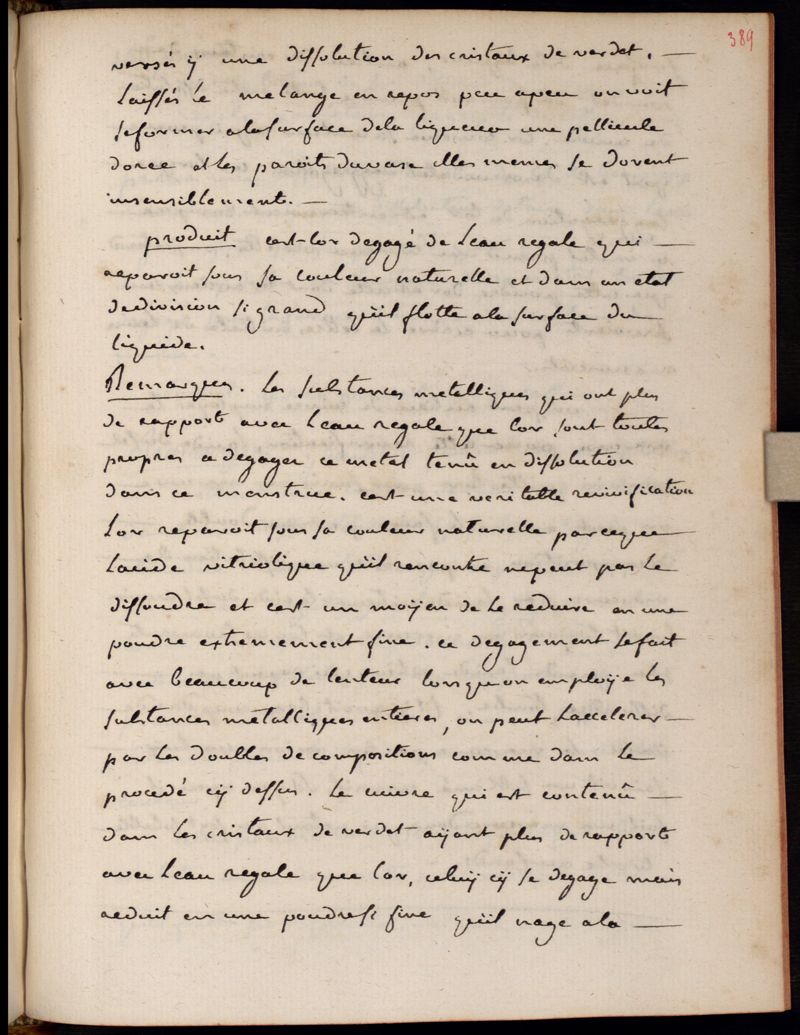 389
versés ÿ une dissolution des cristaux de verdet. —
Laissés le melange en repos peu apeu on voit
se former a la surface de la liqueur une pellicule
dorée et les parois du vase elles memes se dorent
insensiblement. —
produit cest lor degagé de leau regale qui —
reparoit sous sa couleur naturelle et dans un etat
de division si grand qu'il flotte a la surface du —
liquide.
Remarques. Les substances metalliques qui ont plus
de rapport avec leau regale que lor sont toutes
propres a degager ce metal tenû en dissolution
dans ce menstrue. cest une veritable revivification
Lor reparoit sous sa couleur naturelle parceque —
lacide vitriolique qu'il rencontre nepeut pas le
dissoudre et cest un moÿen de le reduire en une
poudre extremement fine. ce degagement se fait
avec beaucoup de lenteur lorsquon emploÿe les
substances metalliques entieres, on peut laccelerer —
par les doubles decompositions comme dans le
procedé cÿ dessus. Le cuivre qui est contenû —
dans les cristaux de verdet aÿant plus de rapport
avec leau regale que lor, celuÿ cÿ se degage mais
reduit en une poudre si fine qu'il nage a la —